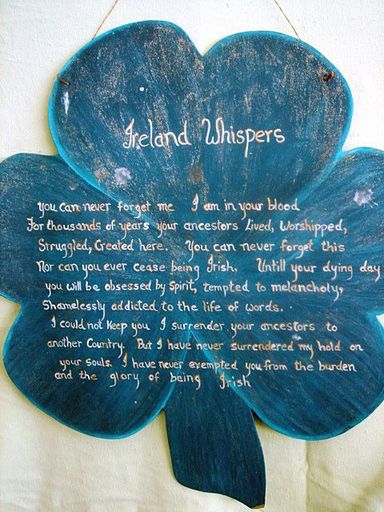 Ireland Whispers
You can never forget me I am in your blood
For thousands of years your ancestors Lived, Worshipped,
Struggled, Created here. You can never forget this
Nor can you ever cease being Irish. Untill your dying day
you will be obsessed by Spirit, tempted to melancholy,
Shamelessly addicted to the life of words.
I could not keep you I surrender your ancestors to
another Country. But I have never surrendered my hold on
your souls. I have never exempted you from the burden
and the glory of being Irish